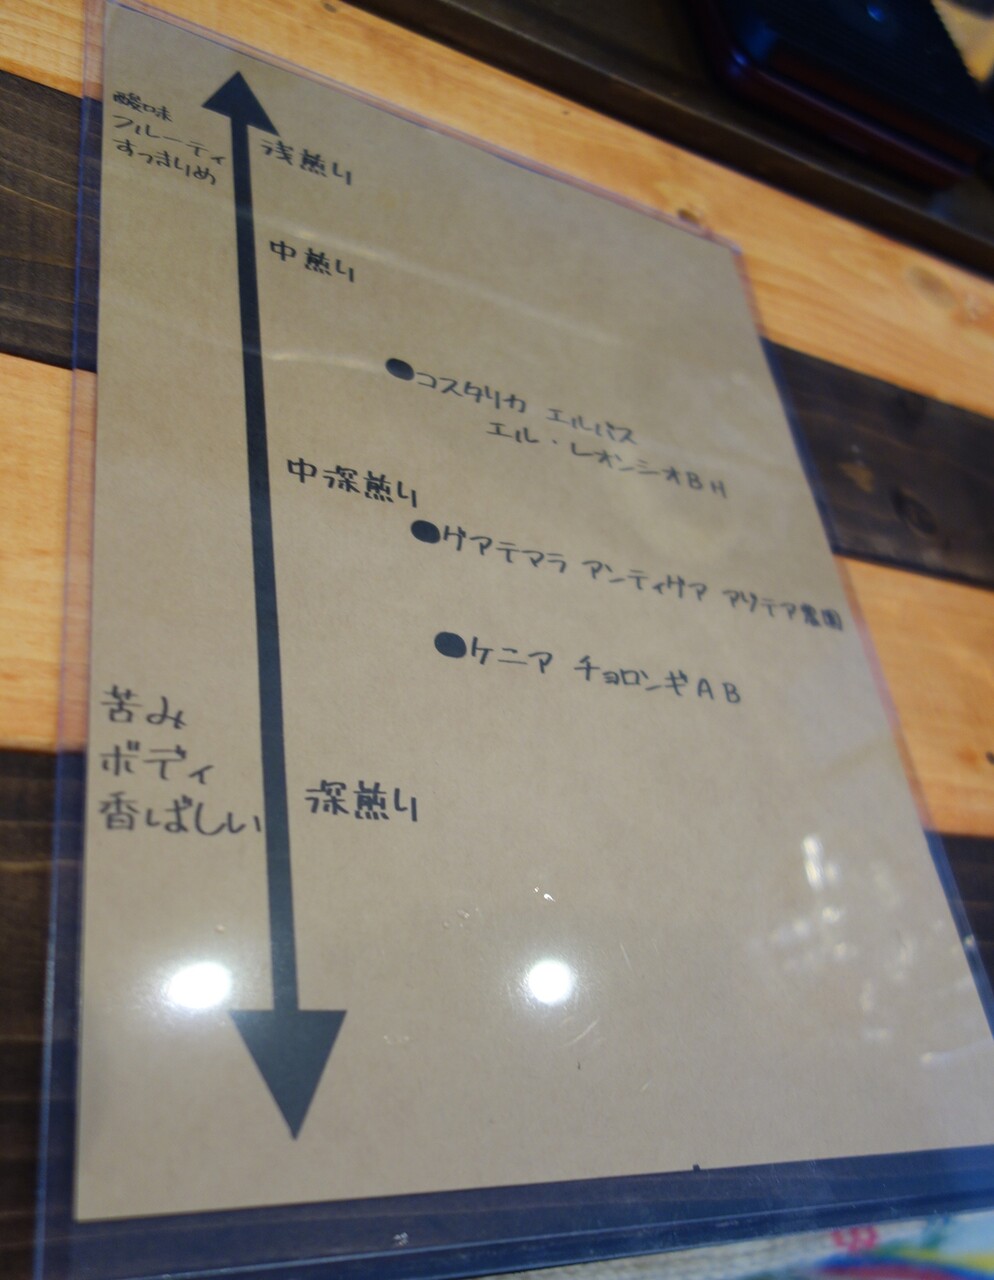 酸味
フルーティ
すっきりめ
浅煎り
中煎り
●コスタリカ エルバス
エル・レオンシオBH
中深煎り
●グアテマラ アンティグア アゾテア農園
●ケニア チョロンギAB
苦み
ボディ
香ばしい
深煎り